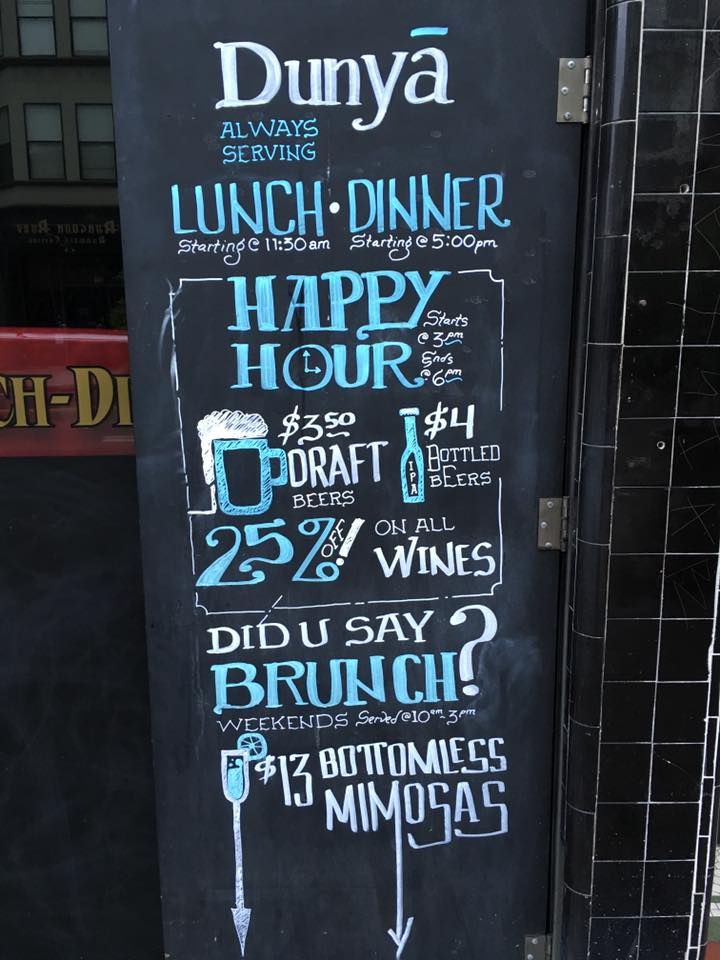 Dunyā
ALWAYS
SERVING
LUNCH · DINNER
Starting @ 11:30am Starting @ 5:00pm
HAPPY
HOUR
Starts
@ 3pm
Ends
@ 6pm
$3.50
DRAFT
BEERS
IPA
$4
BOTTLED
BEERS
25% OFF! ON ALL
WINES
DID U SAY
BRUNCH?
WEEKENDS Served @10am-3pm
$13 BOTTOMLESS
MIMOSAS
CH-DI